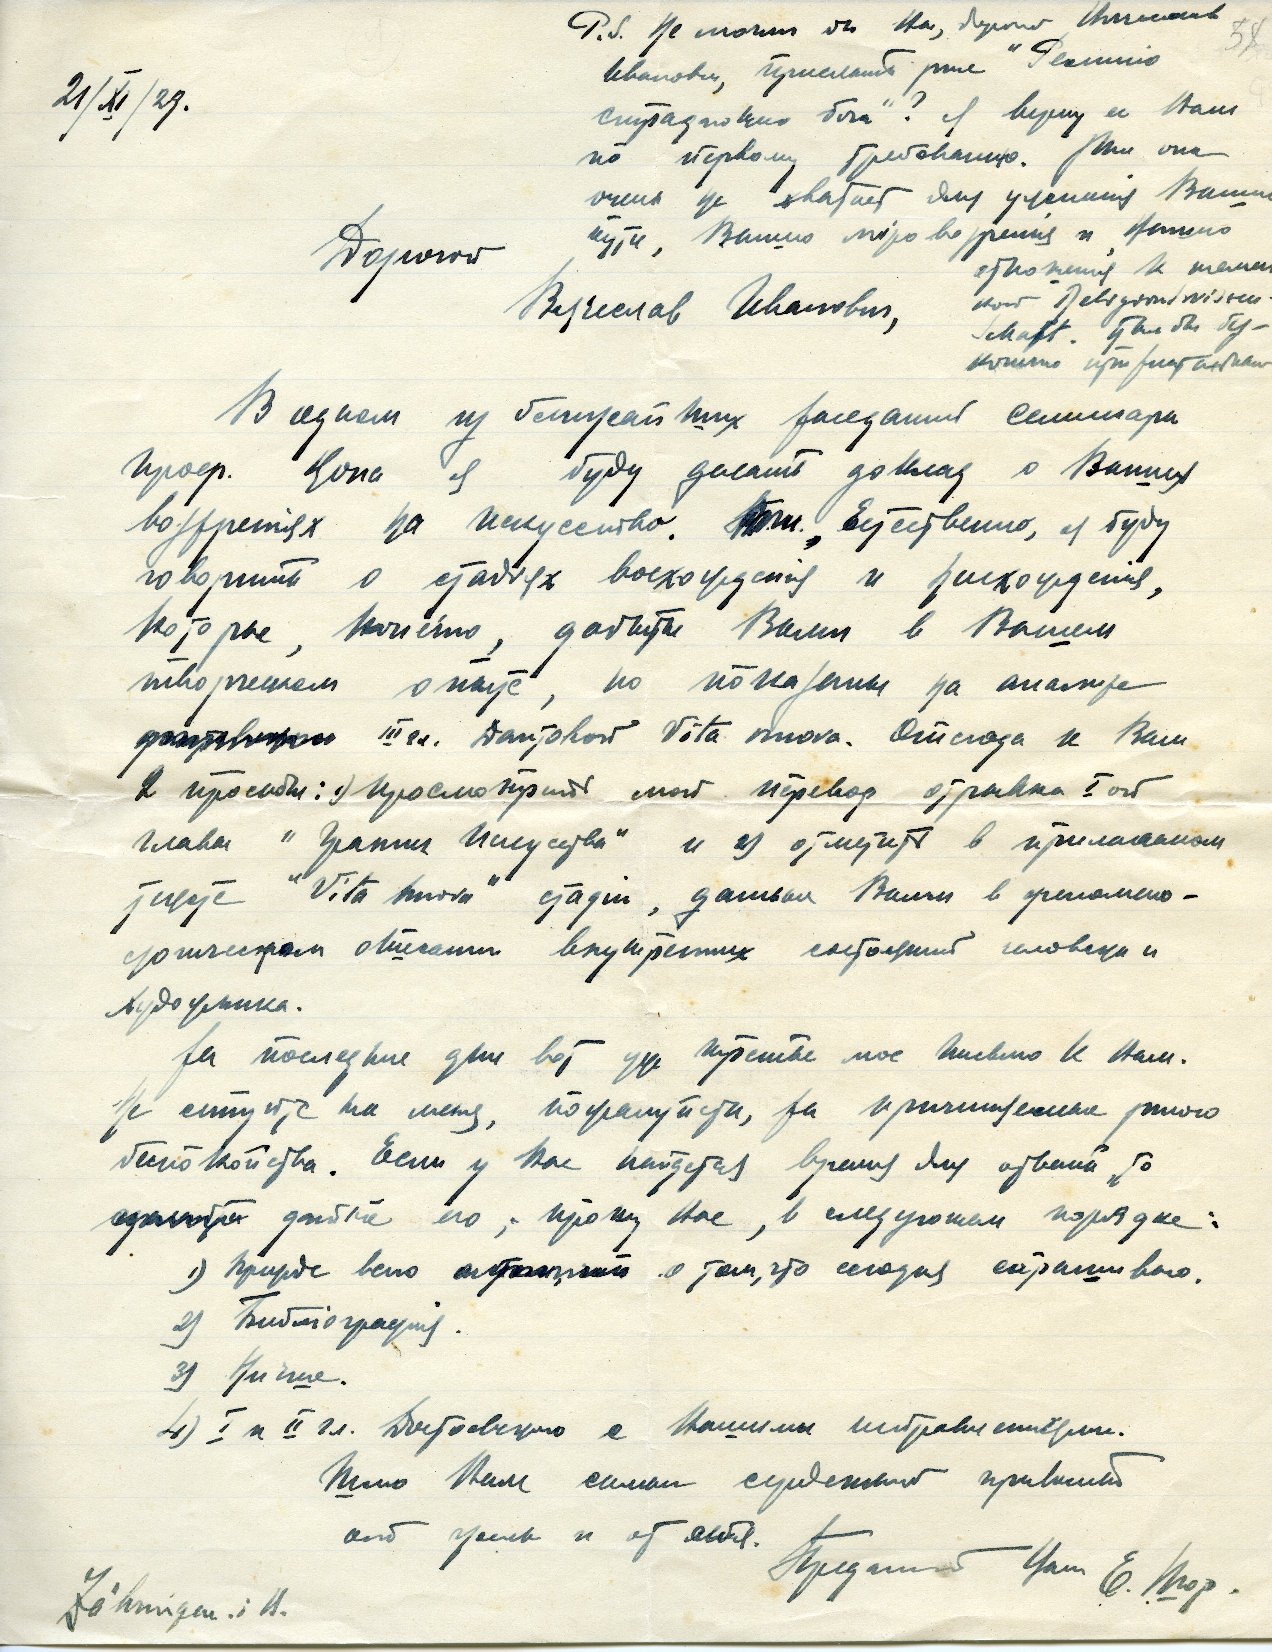 21/XI/29.
P.S. Не могли бы Вы, дорогой Вячеслав
Иванович, прислать мне "Религію
страдающаго бога"? Я верну ее Вам
по первому требованию. Мне она
очень не хватает для уяснения Вашего
пути, Вашего міровоззрения и Вашего
отношения к немец-
кой Religionswissen-
schaft. Мне бы бес-
конечно
Дорогой
Вячеслав Иванович,
В одном из ближайших заседаний семинара
проф. Кона я буду делать доклад о Ваших
воззрениях на искусство. Естественно, я буду
говорить о стадиях восхождения и нисхождения,
которые, конечно, добыты Вами в Вашем
творческом опыте, но показаны на анализе
III гл. Дантовой Vita nuova. Отсюда к Вам
2 просьбы: 1) просмотреть мой перевод отрывка I ой
главы "Границ Искусства" и 2) отметить в прилагаемом
тексте "Vita nuova" стадіи, данные Вами в феномено-
логическом описании внутренних состояний человека и
художника.
За последние дни вот уже третье мое письмо к Вам.
Не сетуйте на меня, пожалуйста, за причиняемое мною
беспокойство. Если у Вас найдется время для ответа, то
дайте его, прошу Вас, в следующем порядке:
1) Прежде всего о том, что сегодня спрашиваю.
2) Библіографія.
3) Ничше.
4) I и II гл. Достоевского с Вашими исправлениями.
Шлю Вам самый сердечный привет
от жены и от себя.
Преданный Вам Е. Шор.
Zähringen i B.